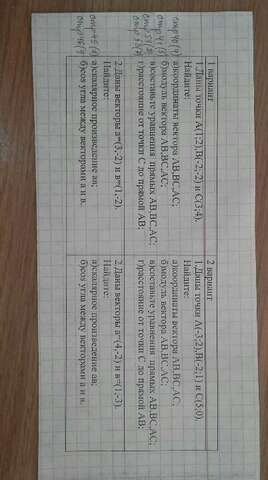 1 вариант
1.Даны точки А(1;2),В(-2;-2) и С(3;4).
Найдите:
а)координаты вектора АВ,ВС,АС;
б)модуль вектора АВ,ВС,АС;
в)составьте уравнения прямых АВ,ВС,АС;
г)расстояние от точки С до прямой АВ;
2.Даны векторы а=(3,-2) и в=(1,-2).
Найдите:
а)скалярное произведение ав;
б)cos угла между векторами а и в.
2 вариант
1.Даны точки А(-3;2),В(-2;1) и С(5;0).
Найдите:
а)координаты вектора АВ,ВС,АС;
б)модуль вектора АВ,ВС,АС;
в)составьте уравнения прямых АВ,ВС,АС;
г)расстояние от точки С до прямой АВ;
2.Даны векторы а=(4,-2) и в=(1,-3).
Найдите:
а)скалярное произведение ав;
б)cos угла между векторами а и в.